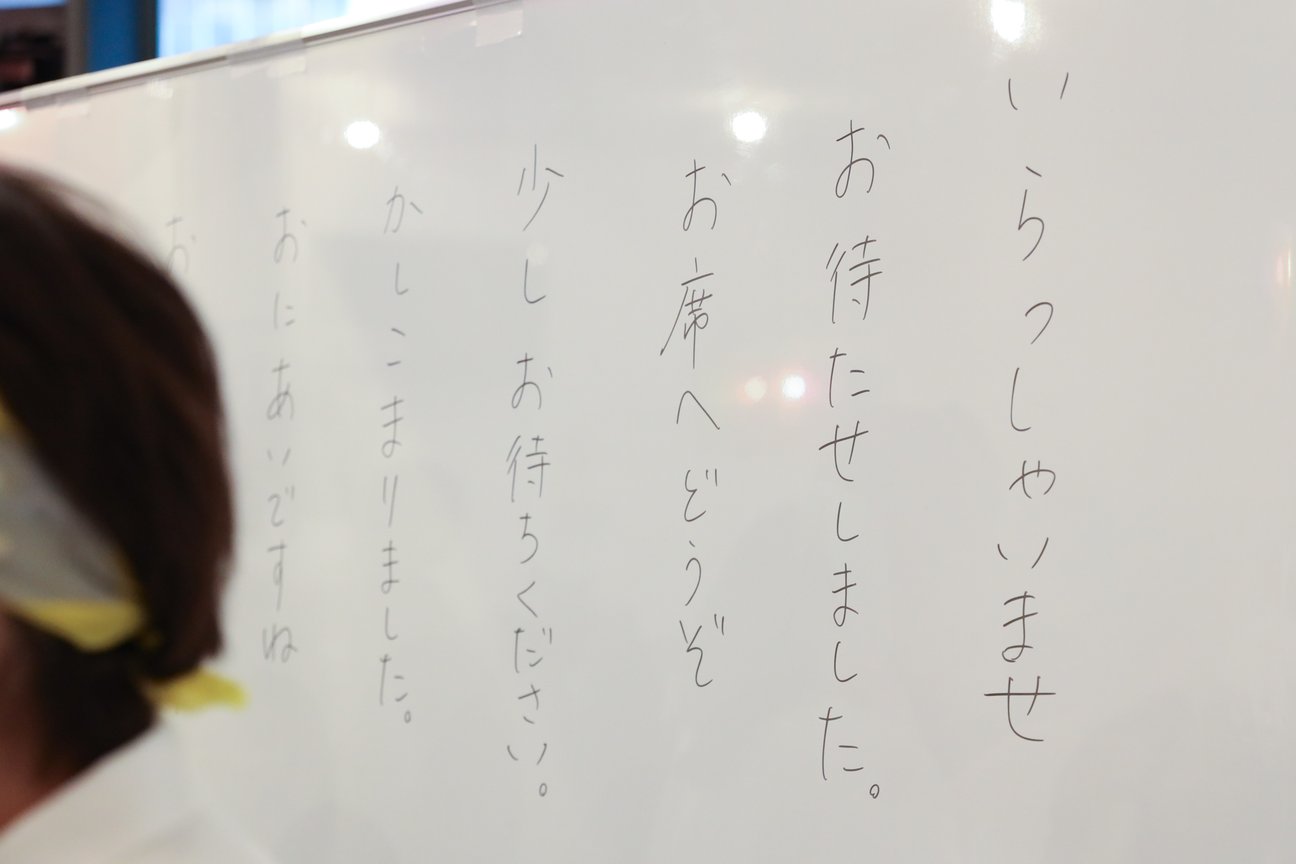 いらっしゃいませ
お待たせしました。
お席へどうぞ
少しお待ちください。
かしこまりました。
おにあいですね
お